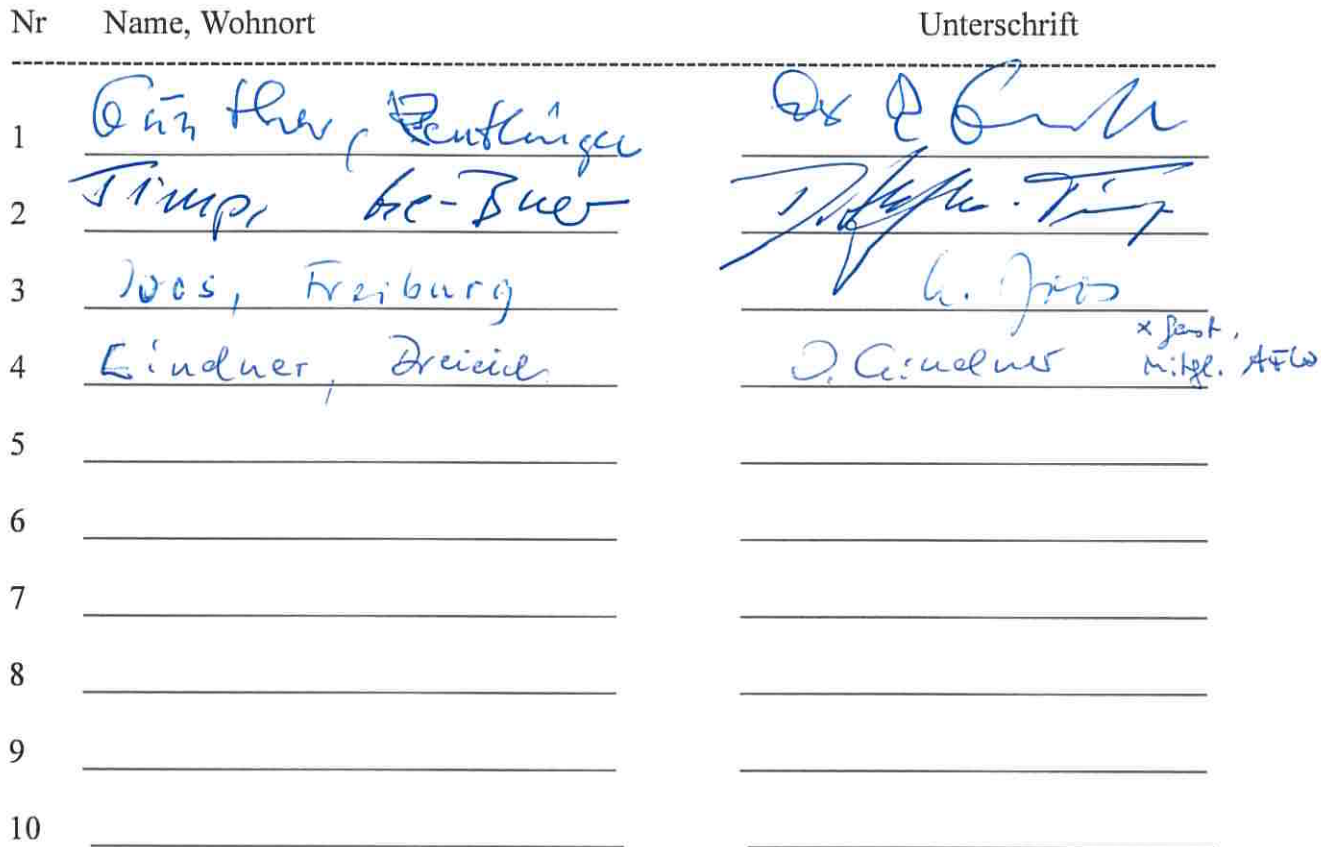 Nr Name, Wohnort Unterschrift
1 Günther, Reutlingen
2 Timp, Ge-Buer
3 Joos, Freiburg K. Joos
4 Lindner, Dreieich D. Lindner
x Gast,
Mitgl.
5
6
7
8
9
10